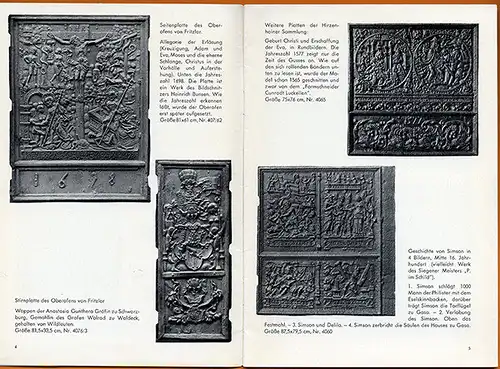 Seitenplatte des Ober-
ofens von Fritzlar.
Allegorie der Erlösung
(Kreuzigung, Adam und
Eva, Moses und die eherne
Schlange, Christus in der
Vorhölle und Auferste-
hung). Unten die Jahres-
zahl 1698. Die Platte ist
ein Werk des Bildschnit-
zers Heinrich Bunsen. Wie
die Jahreszahl erkennen
läßt, wurde der Oberofen
erst später aufgesetzt.
Größe 81x61 cm, Nr. 407:62
1698
Stirnplatte des Oberofens von Fritzlar
Wappen der Anastasia Gunthera Gräfin zu Schwarz-
burg, Gemahlin des Grafen Wolrad zu Waldeck,
gehalten von Wildleuten.
Größe 83,5x33,5 cm, Nr. 4076:3
4
Weitere Platten der Hirzen-
hainer Sammlung:
Geburt Christi und Erschaffung
der Eva, in Rundbildern. Die
Jahreszahl 1577 zeigt nur die
Zeit des Gusses an. Wie auf
den sich rollenden Bändern un-
ten zu lesen ist, wurde der Mo-
del schon 1565 geschnitten und
zwar von dem „Formschneider
Cunradt Luckellen".
Größe 75x76 cm, Nr. 4065
Geschichte von Simson in
4 Bildern, Mitte 16. Jahr-
hundert (vielleicht Werk
des Siegener Meisters „P.
im Schild").
1. Simson schlägt 1000
Mann der Philister mit dem
Eselskinnbacken, darüber
trägt Simson die Torflügel
zu Gaza. – 2. Verlobung
des Simson. Oben das
Festmahl. – 3. Simson und Delila. – 4. Simson zerbricht die Säulen des Hauses zu Gaza.
Größe 87,5x79,5 cm, Nr. 4060
5